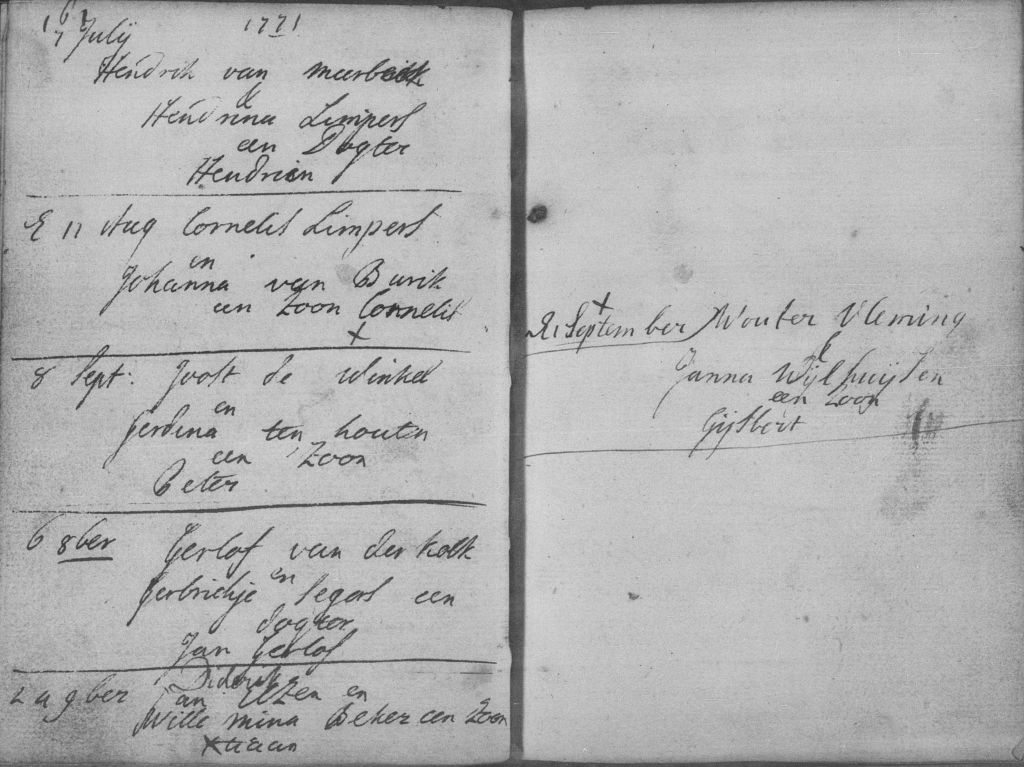 1771
17 Julij
Hendrik van meerbeek
&
Hendrina Limpers
een Dogter
Hendrien
E 11 Aug Cornelis Limpers
en
Johanna van Burik
een Zoon Cornelis
x
8 Sept: Joost de Winkel
en
Gerdina ten houten
een Zoon
Peter
6 8ber Gerlof van der kolk
en
Gerbrichje Segers een
dogter
Jan Gerlof
Diderik
9ber van en
Wille mina Beker een Zoon
x
21 September Wouter Vleming
&
Janna Wijlhuijsen
een Zoon
Gijsbert